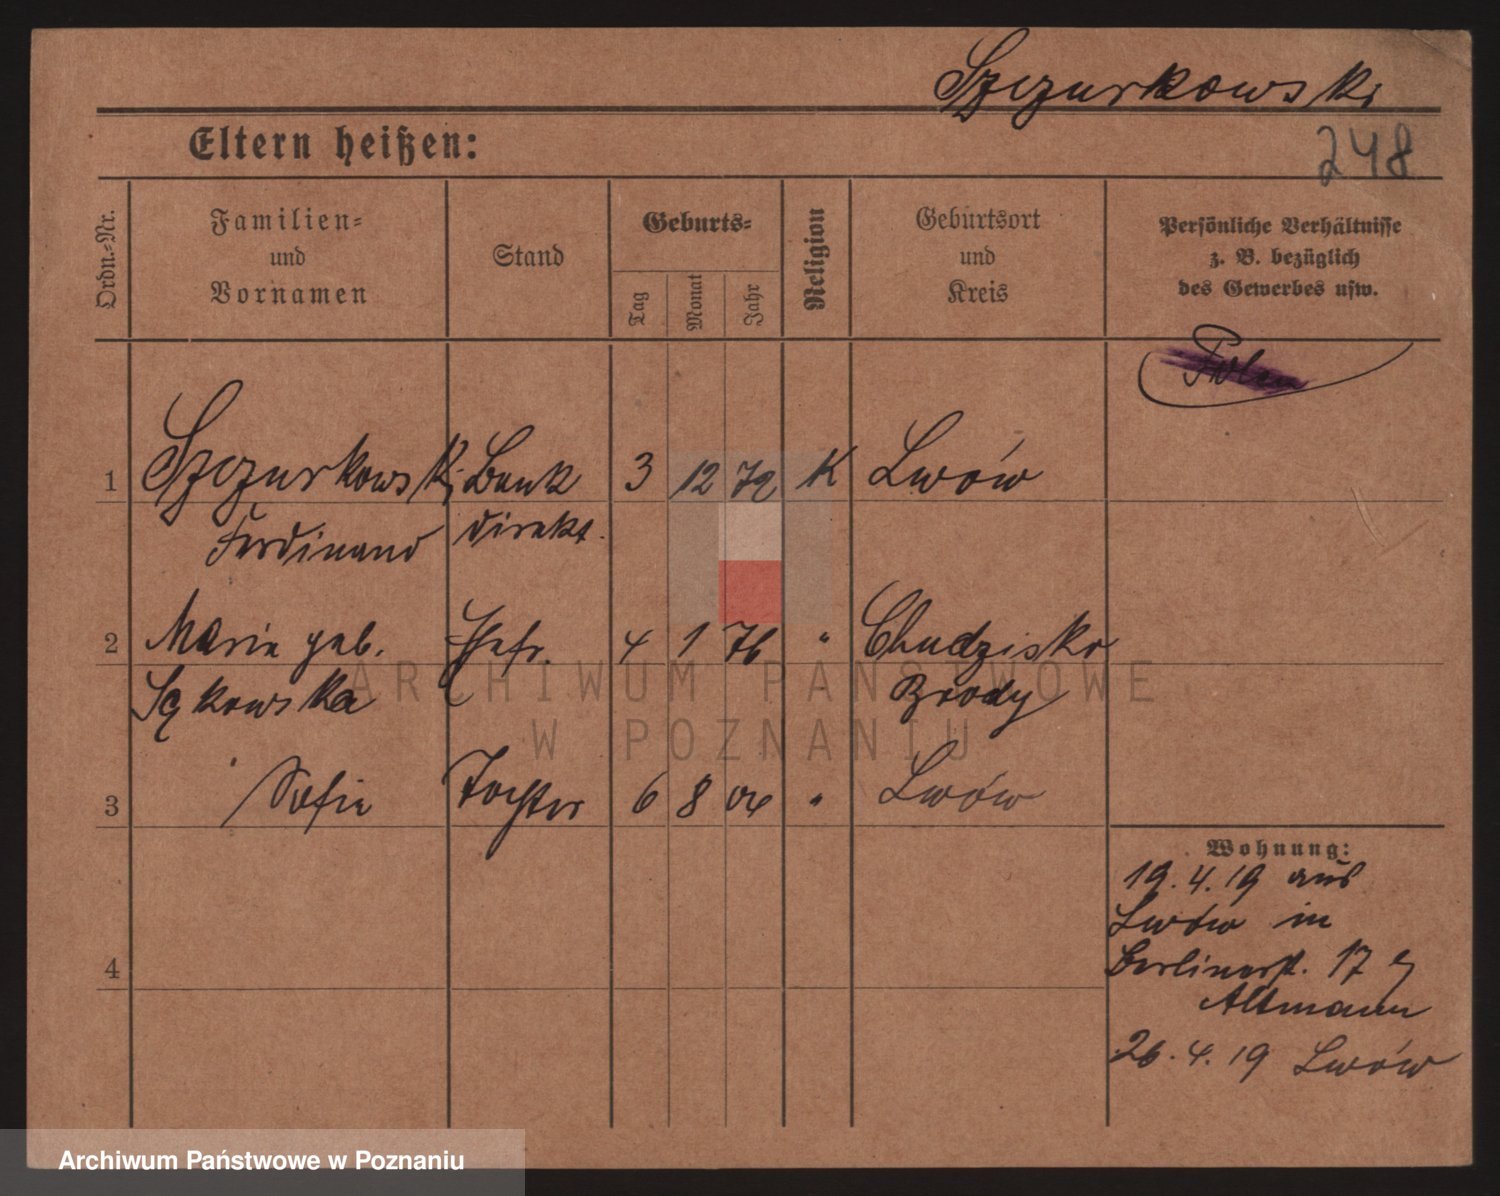 Szczurkowski
248
Eltern heißen:
Ordn.-Nr.
Familien-
und
Vornamen
Stand
Geburts-
Tag
Monat
Jahr
Religion
Geburtsort
und
Kreis
Persönliche Verhältnisse
z. B. bezüglich
des Gewerbes usw.
Polen
1 Szczurkowski Bank 3 12 72 K Lwów
Ferdinand direkt.
2 Marie geb. Ehefr. 4 1 76 " Chudzisko
Brody
3 Sofie Tochter 6 8 04 " Lwów
4
Wohnung:
19.4.19 aus
Lwów in
Berlinerst. 17
Altmann
26.4.19 Lwów
ARCHIWUM PAŃSTWOWE
W POZNANIU
Archiwum Państwowe w Poznaniu